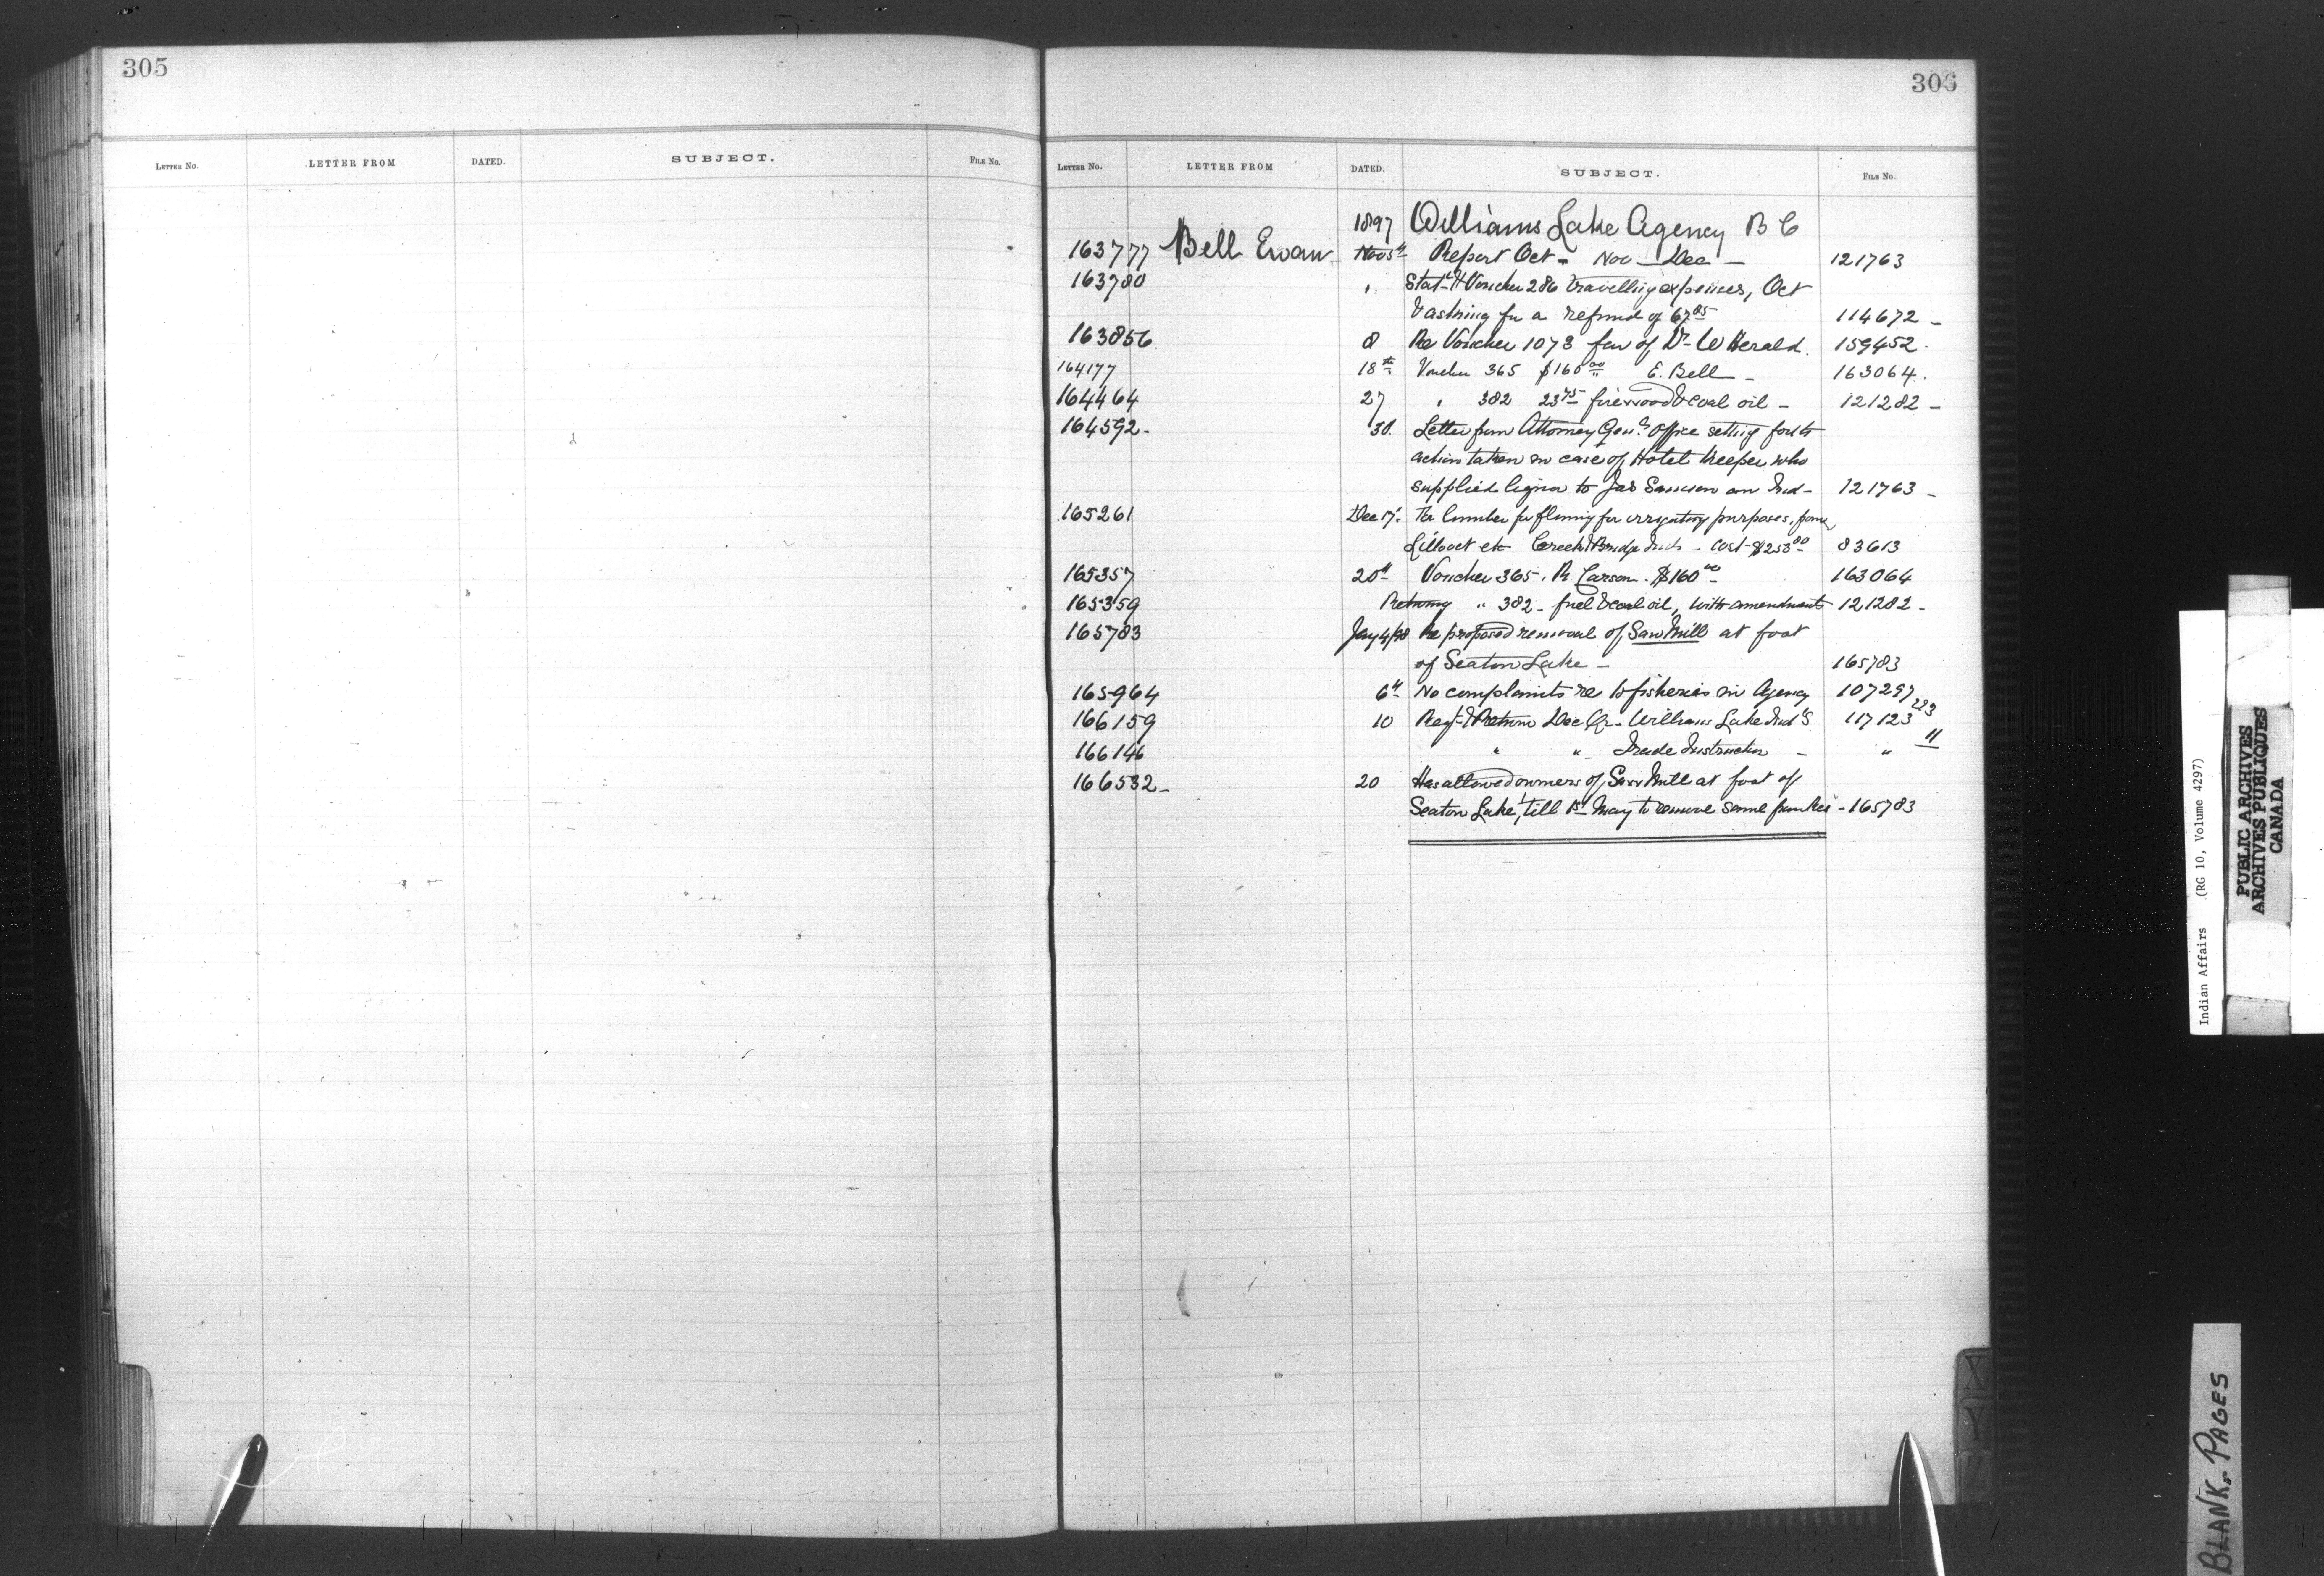 305
LETTER NO. LETTER FROM DATED. SUBJECT. FILE NO.
306
LETTER NO. LETTER FROM DATED. SUBJECT. FILE NO.
1897 Williams Lake Agency B C
163777 Bell Ewan Nov 5th Report Oct - Nov - Dec - 121763
163780 " Stat- & Voucher 286 travelling expenses, Oct
& asking for a refund of 67 85 114672 -
163856 8 Re Voucher 1073 fav of Dr W Herald. 159452.
164177 18th Voucher 365 $160 00 E. Bell - 163064.
164464 27 " 382 23 75 firewood & coal oil - 121282 -
164592 - 30. Letter from Attorney Genls Office setting forth
action taken in case of Hotel Keeper who
supplied liquor to Jas Samson an Ind - 121763 -
165261 Dec 17. Re lumber for fluming for irrigating purposes, from
Lillooet etc Creek & Bridge Inds - Cost $253 80 83613
165357 20th Voucher 365. R Carson. $160 00 163064
165359 Returning " 382 - fuel & coal oil, with amendments 121282 -
165783 Jany 4/98 Re proposed removal of Saw Mill at foot
of Seaton Lake - 165783
165964 6th No complaints re to fisheries in Agency 107297
166159 10 Reqt & Return Dec Qr - Williams Lake Ind S 117123 223
166146 " " Trade Instructor - " 11
166532 - 20 Has allowed owners of Saw Mill at foot of
Seaton Lake, till 1st May to remove same - 165783
Indian Affairs (RG 10, Volume 4297)
PUBLIC ARCHIVES
ARCHIVES PUBLIQUES
CANADA
BLANK PAGES
X
Y
Z